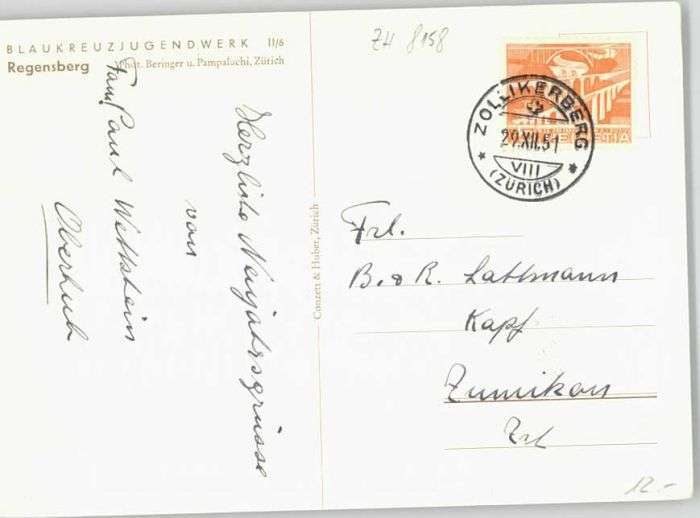 BLAUKREUZJUGENDWERK 11/6
Regensberg Phot. Beringer u. Pampaluchi, Zürich
ZH 8158
HELVETIA
ZOLLIKERBERG
29.XII.51
VIII
(ZÜRICH)
Herzliche Neujahrsgrüsse
von
Fam. Paul Wettstein
Oberhub
Conzett & Huber, Zürich
Frl.
B. & R. Lattmann
Kapf
Zumikon
Zch
12.-